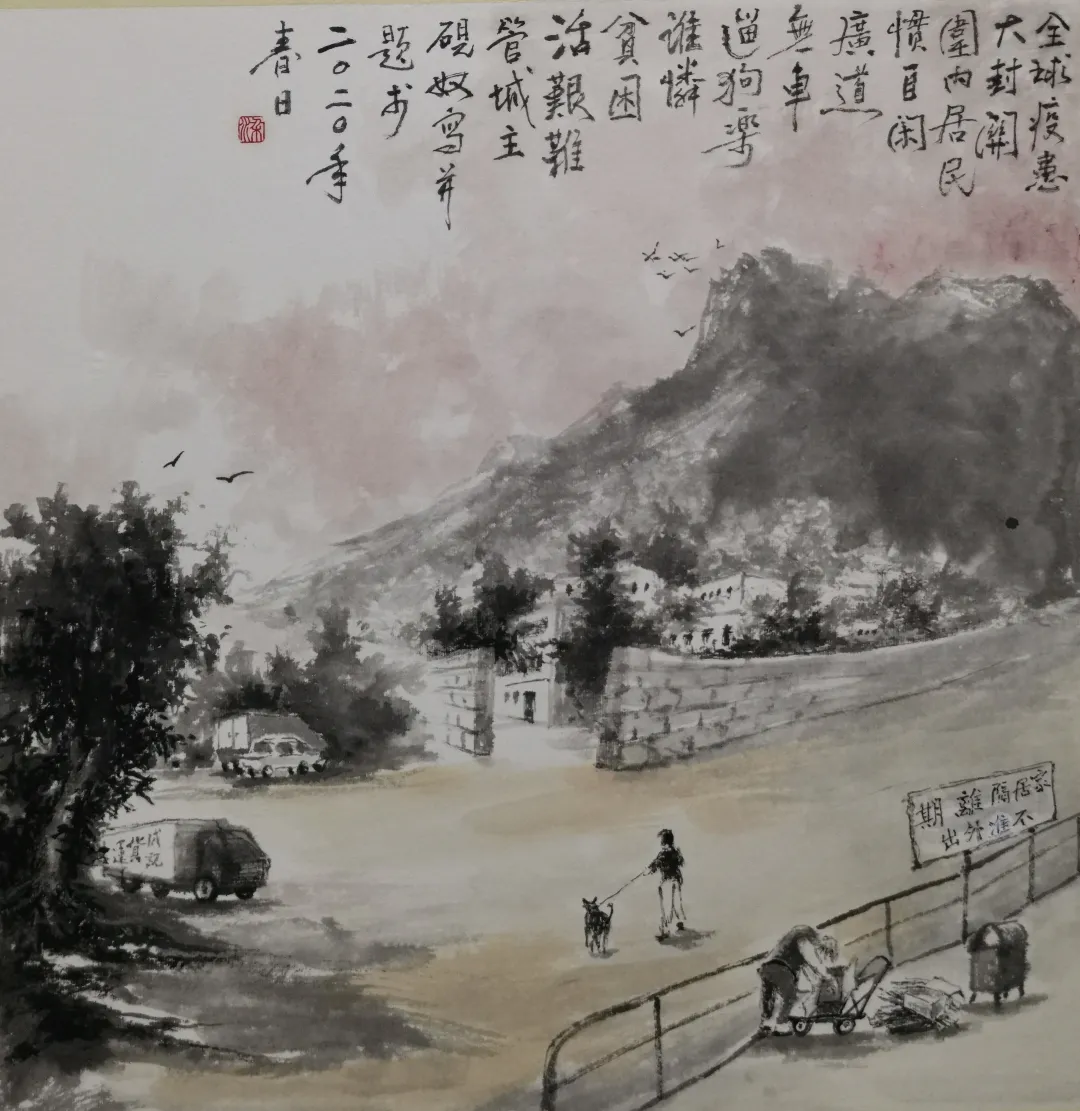 全球疫患
大封關
圍內居民
慣自閑
廣道
無車
遛狗樂
誰憐
貧困
活艱難
管城主
硯奴寫并
題於
二〇二〇年
春日
家居隔離期
不准外出